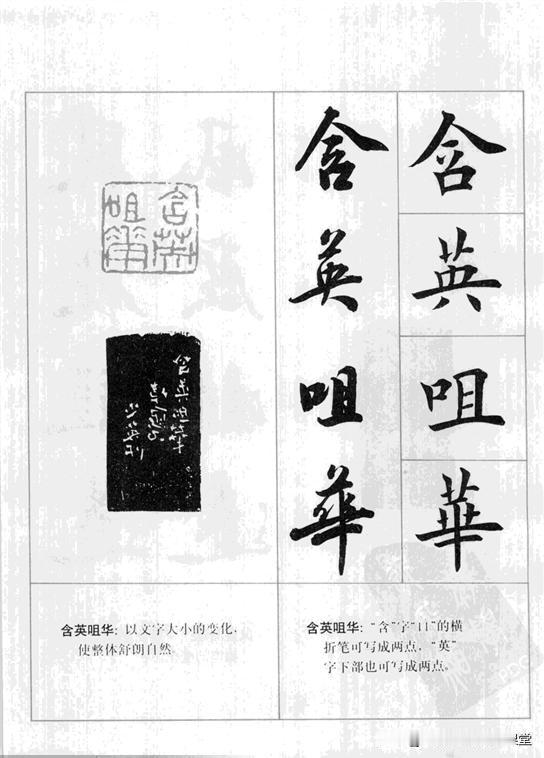 含英咀華
含英咀華
含英咀華
含英咀華
含英咀华：以文字大小的变化，
使整体舒朗自然
含英咀华："含"字"口"的横
折笔可写成两点，"英"
字下部也可写成两点。
堂